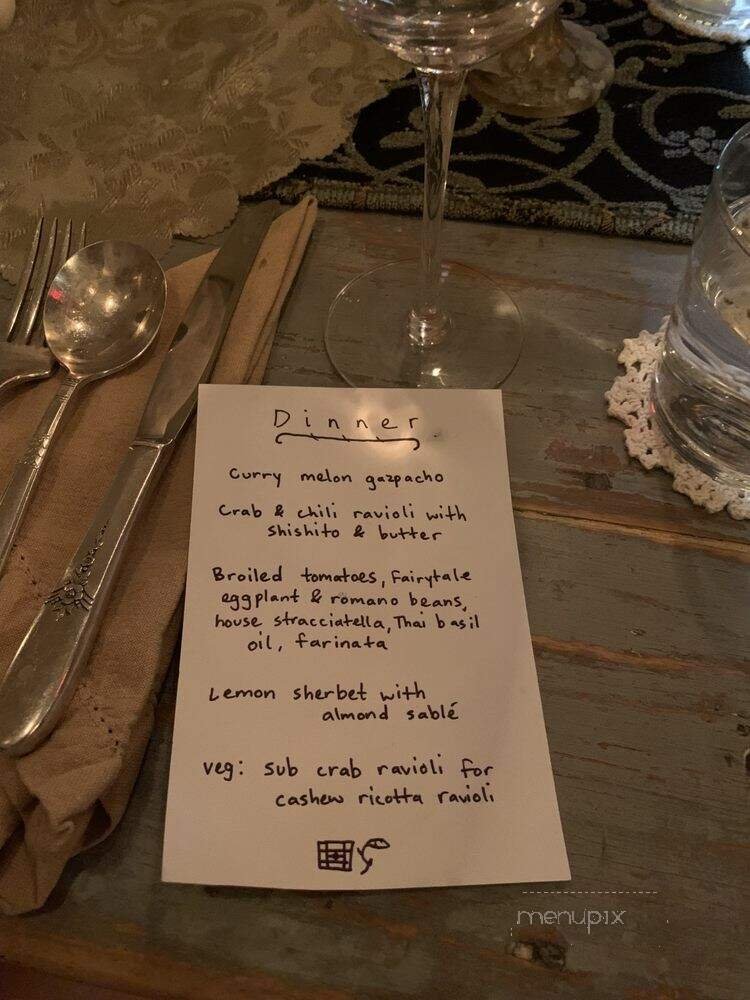 Dinner
Curry melon gazpacho
Crab & chili ravioli with
shishito & butter
Broiled tomatoes, Fairytale
eggplant & romano beans,
house stracciatella, Thai basil
oil, farinata
Lemon sherbet with
almond sablé
veg: sub crab ravioli for
cashew ricotta ravioli
menupix